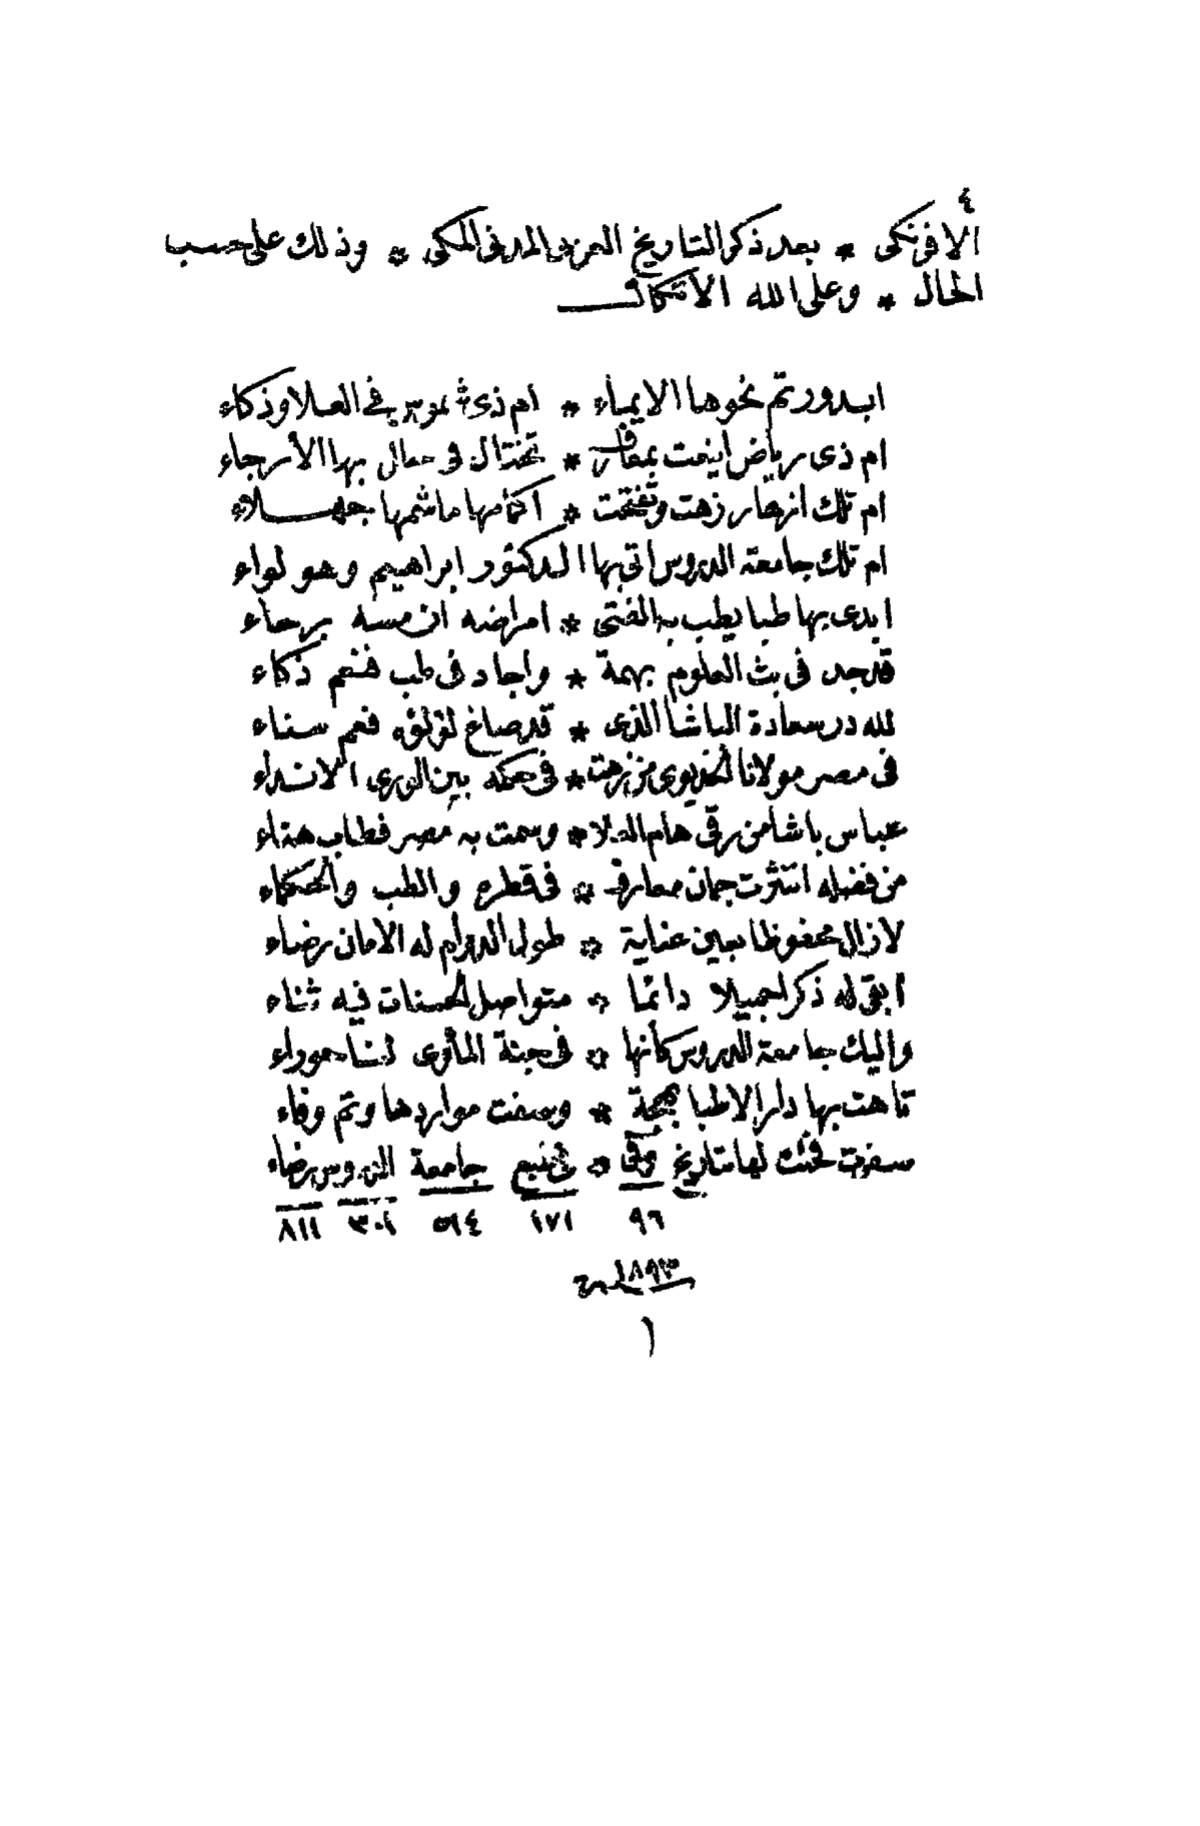 ٤
الافرنكى * بعد ذكر التاريخ العربى المدنى المكى * وذلك على حسب
الحال * وعلى الله الاتكال
ابدور تم نحوها الايماء * ام ذى شموس فى العلا وذكاء
ام ذى رياض اينعت بمعارف * تختال فى حلل بها الأرجاء
ام تلك ازهار زهت وتفتحت * اكمامها ما شمها جهلاء
ام تلك جامعة الدروس اتى بها الدكتور ابراهيم وهو لواء
ابدى بها طبا يطب به الفتى * امراضه ان مسه برحاء
قد جد فى بث العلوم بهمة * واجاد فى طب فنعم ذكاء
لله در سعادة الباشا الذى * قد صاغ لؤلؤه فعم سناء
فى مصر مولانا الخديوى من زهت * فى حكمه بين الورى الانداء
عباس باشا من رقى هام العلا * وسمت به مصر فطاب هناء
من فضله انتثرت جمان معارف * فى قطره والطب والحكماء
لا زال محفوظا بعين عناية * طول الدوام له الامان رضاء
ابقى له ذكرا جميلا دائما * متواصل الحسنات فيه ثناء
واليك جامعة الدروس كأنها * فى جنة المأوى لنا حوراء
تاهت بها دار الاطبا بهجة * وصفت مواردها وتم وفاء
سفرت فجئت لها بتاريخ * جامعة الدروس رضاء
٩٦ ١٧١ ٥١٤ ٣٠١ ٨١١
١٨٩٣
١